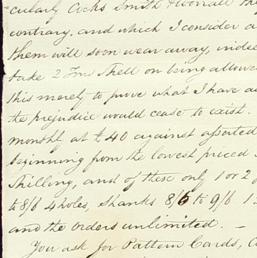 cularly Cocks Smith & Worrall th
contrary, and which I consider a
them will soon wear away, indee
take 2 Fm Shell on being allowe
this merely to prove what I have a
the prejudice would cease to exist.
month at £40 against assorted
beginning from the lowest priced
Shilling, and of these only 1 or 2 g
to 8/6 4 holes, Shanks 8/6 to 9/6 1
and the orders unlimited. —
You ask for Pattern Cards, C